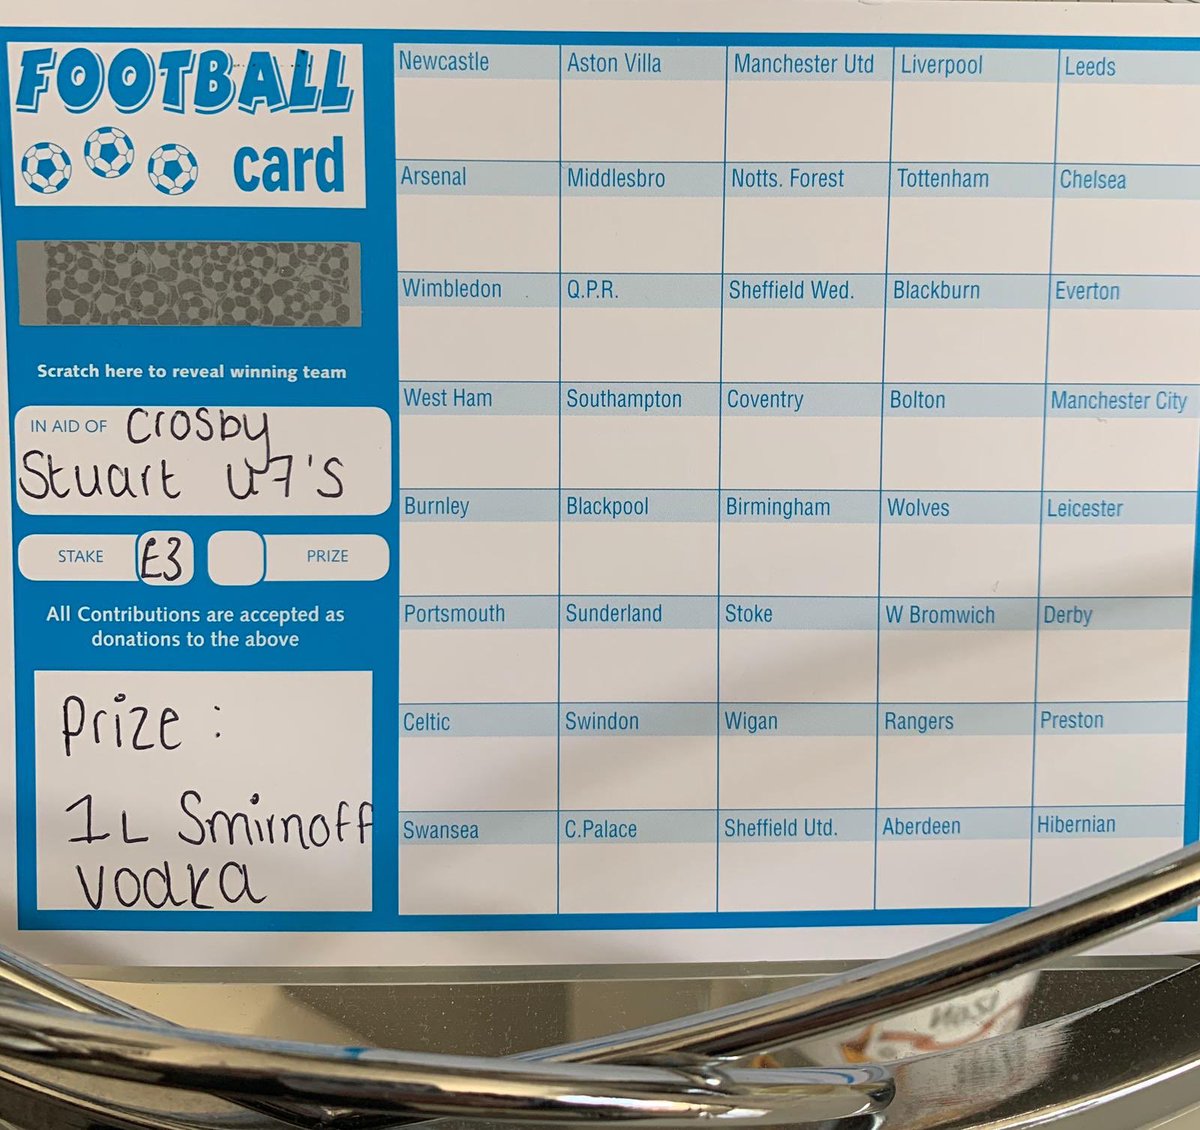 FOOTBALL
card
Scratch here to reveal winning team
IN AID OF Crosby
Stuart U7's
STAKE £3 PRIZE
All Contributions are accepted as
donations to the above
Prize :
1L Smirnoff
vodka
Newcastle Aston Villa Manchester Utd Liverpool Leeds
Arsenal Middlesbro Notts. Forest Tottenham Chelsea
Wimbledon Q.P.R. Sheffield Wed. Blackburn Everton
West Ham Southampton Coventry Bolton Manchester City
Burnley Blackpool Birmingham Wolves Leicester
Portsmouth Sunderland Stoke W Bromwich Derby
Celtic Swindon Wigan Rangers Preston
Swansea C.Palace Sheffield Utd. Aberdeen Hibernian